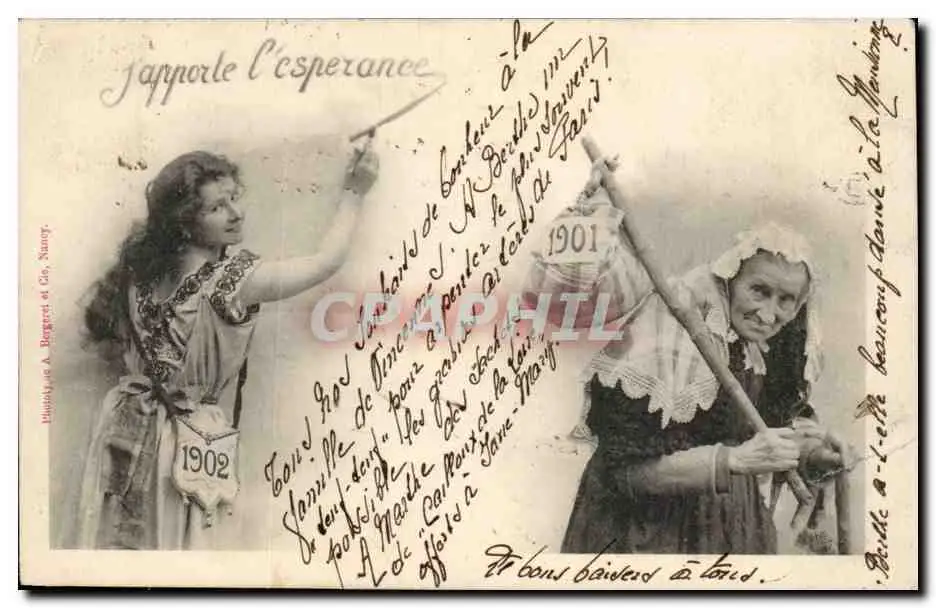 j'apporte l'espérance
Phototypie A. Bergeret et Cie, Nancy.
1902
1901
CPAPHIL
Tous nos souhaits de bonheur à la
famille de Vincennes! A Berthe un
pour arpenter le plus souvent
possible les grandes artères de Paris!
A Marthe des
de Caillout de la
offerts à Jane-Mary
Et bons baisers à tous.
Berthe a-t-elle beaucoup dansé à la